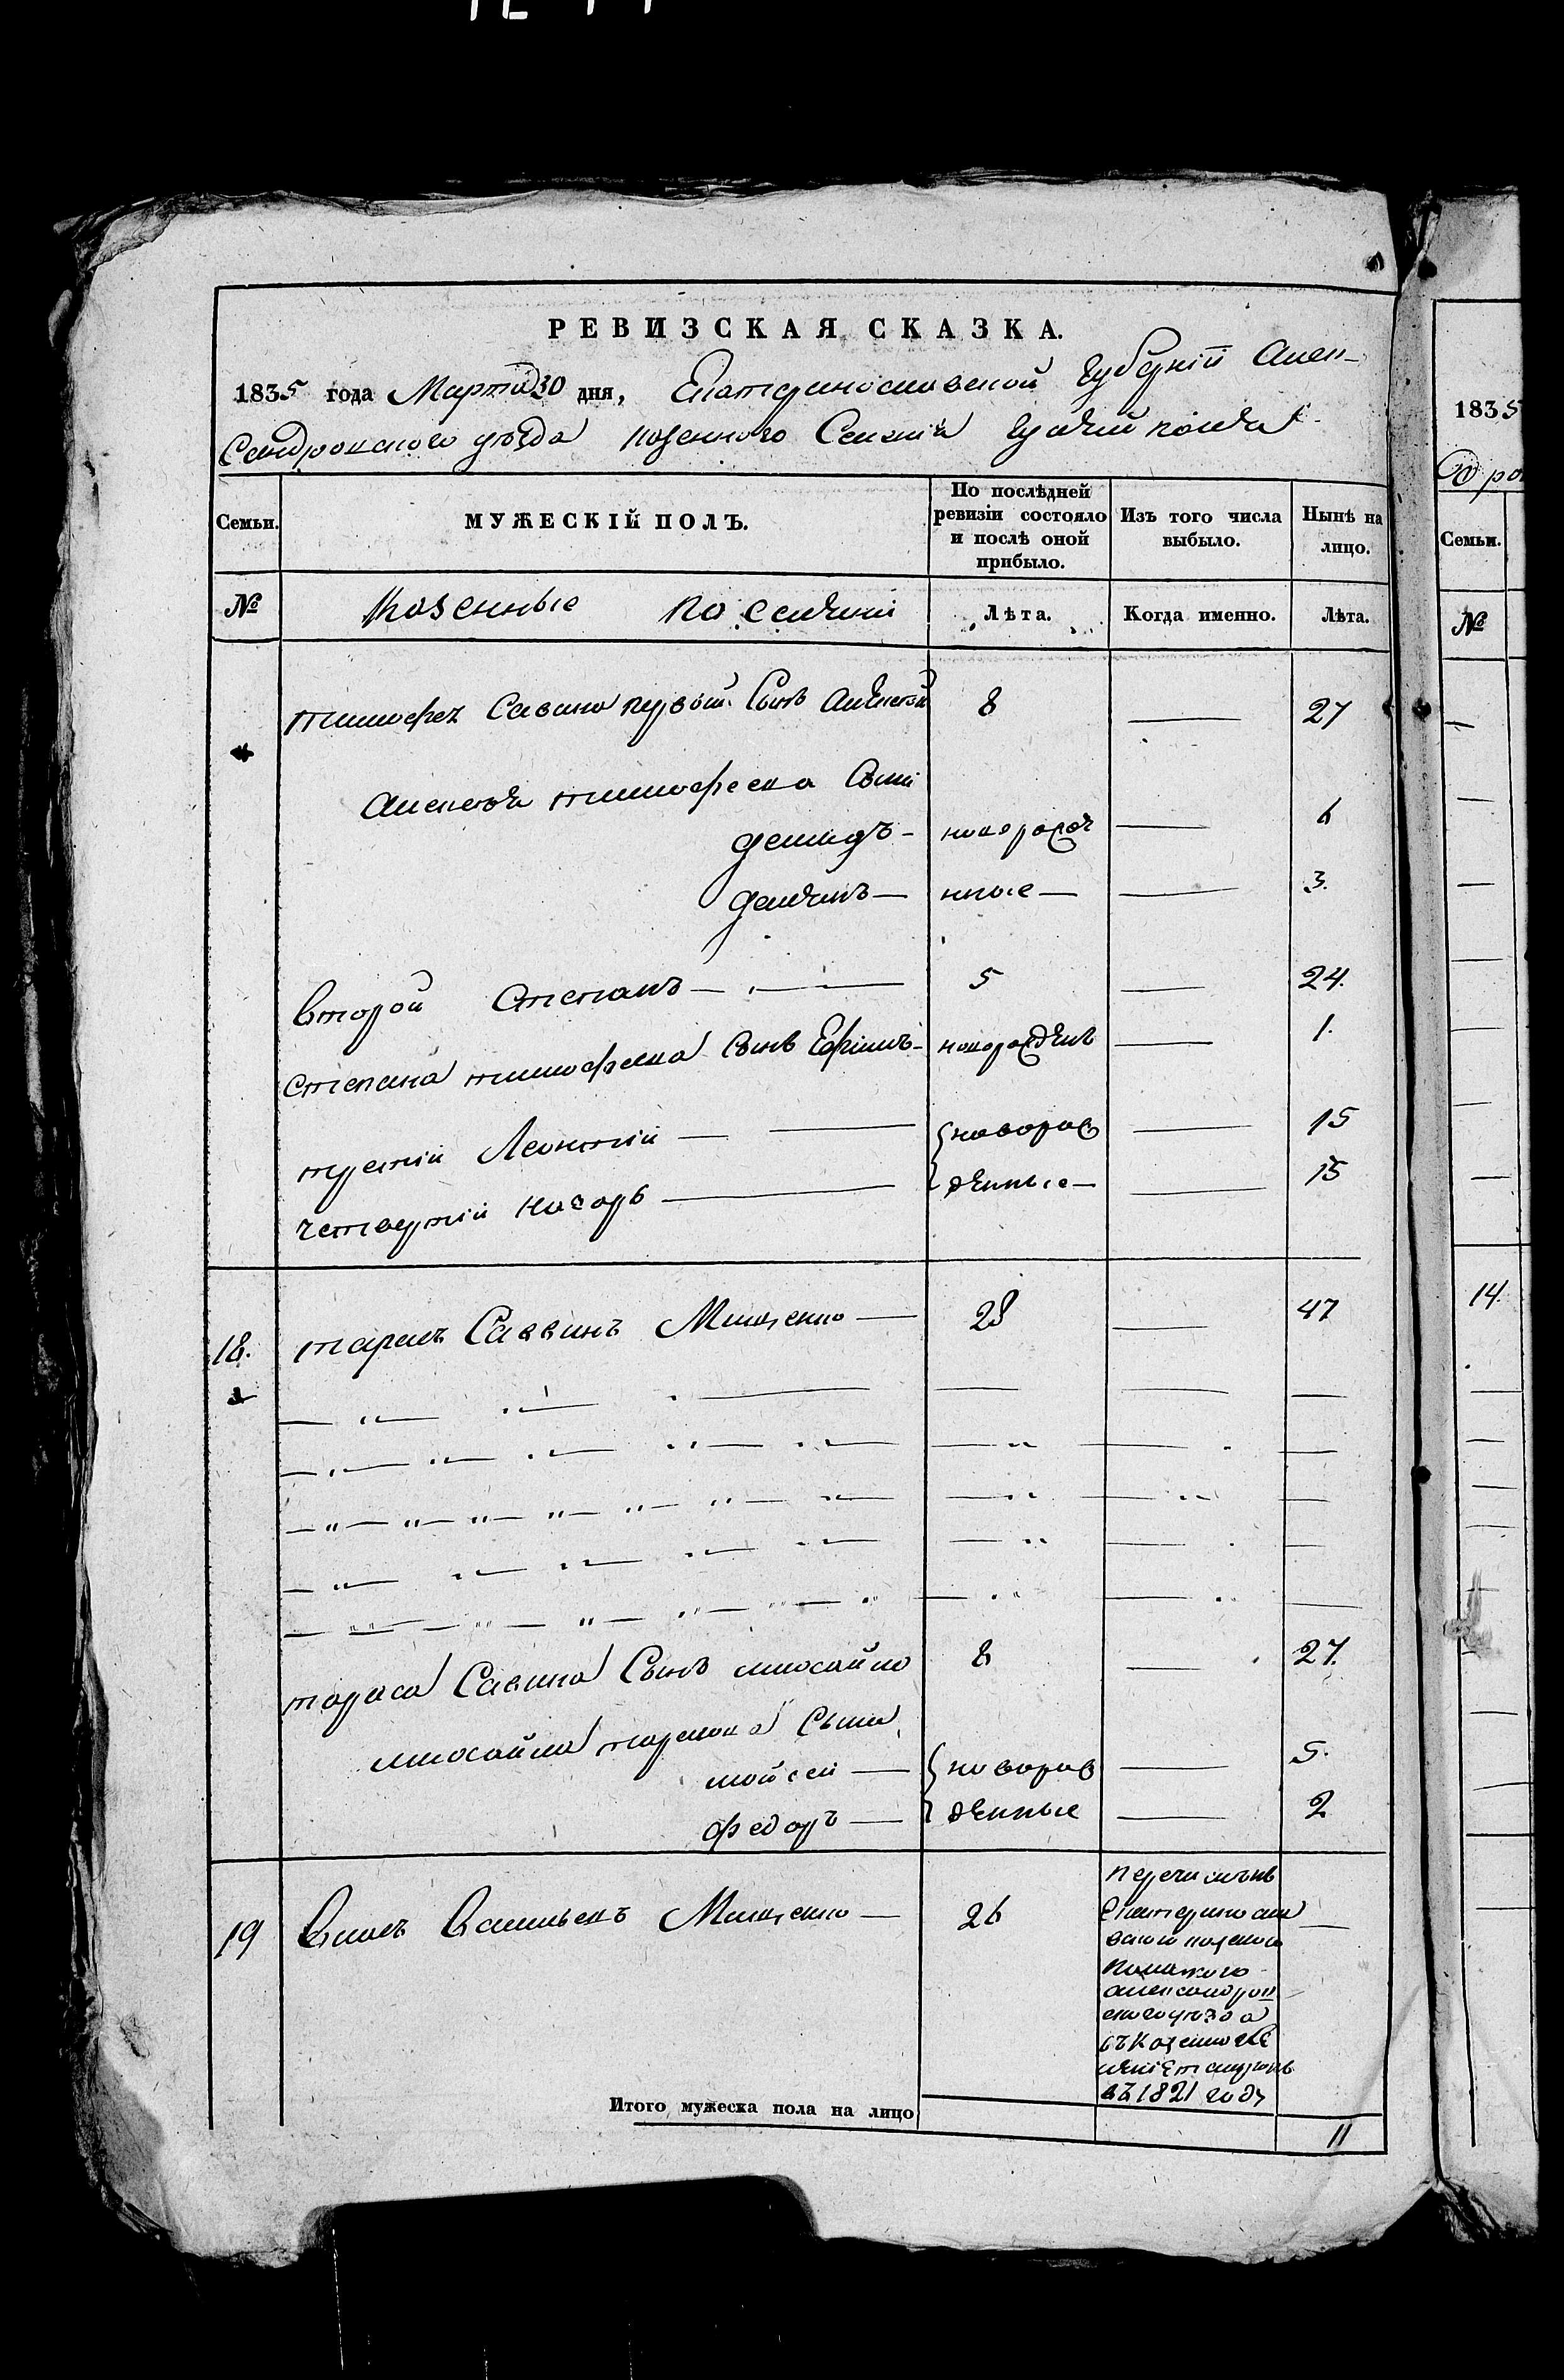 РЕВИЗСКАЯ СКАЗКА.
1835 года Марта 30 дня, Екатеринославской губернiи Алек-
сандровскаго уѣзда казенного Селенiя
Семьи.
МУЖЕСКIЙ ПОЛЪ.
По послѣдней ревизiи состояло и послѣ оной прибыло.
Изъ того числа выбыло.
Нынѣ на лицо.
№ Казенные поселяни Лѣта. Когда именно. Лѣта.
тимофея Савина первой Сынъ Алексѣй 8 — 27
Алексѣя тимофеева Сыни
демидъ — новорожде — 6
демянъ — нные — — 3.
второй Степанъ — 5 — 24.
Степана тимофеева Сынъ Ефимъ — новорожденъ — 1.
третiй Леонтiй — новорож — 15
четвертiй назаръ — денные — — 15
18. тарасъ Саввинъ Мищенко — 28 — 47
тараса Савина Сынъ михайло 8 — 27.
михайла тарасова Сыни
мойсей — новорож — 5.
федоръ — денные — 2
19 Василь Васильевъ Мищенко — 26 —
перечисленъ
Екатеринослав
александров
скаго уѣзда
въ 1821 году
Итого мужеска пола на лицо 11
1835
Семьи.
№
14.